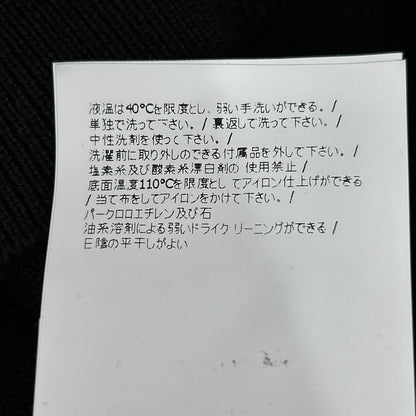 液温は40°Cを限度とし、弱い手洗いができる。/
単独で洗って下さい。/ 裏返して洗って下さい。/
中性洗剤を使って下さい。/
洗濯前に取り外しのできる付属品を外して下さい。/
塩素系及び酸素系漂白剤の 使用禁止 /
底面温度110°Cを限度とし てアイロン仕上げができる
/ 当て布をしてアイロンをかけて下さい。/
パークロロエチレン及び石
油系溶剤による弱いドライク リーニングができる /
日陰の平干しがよい